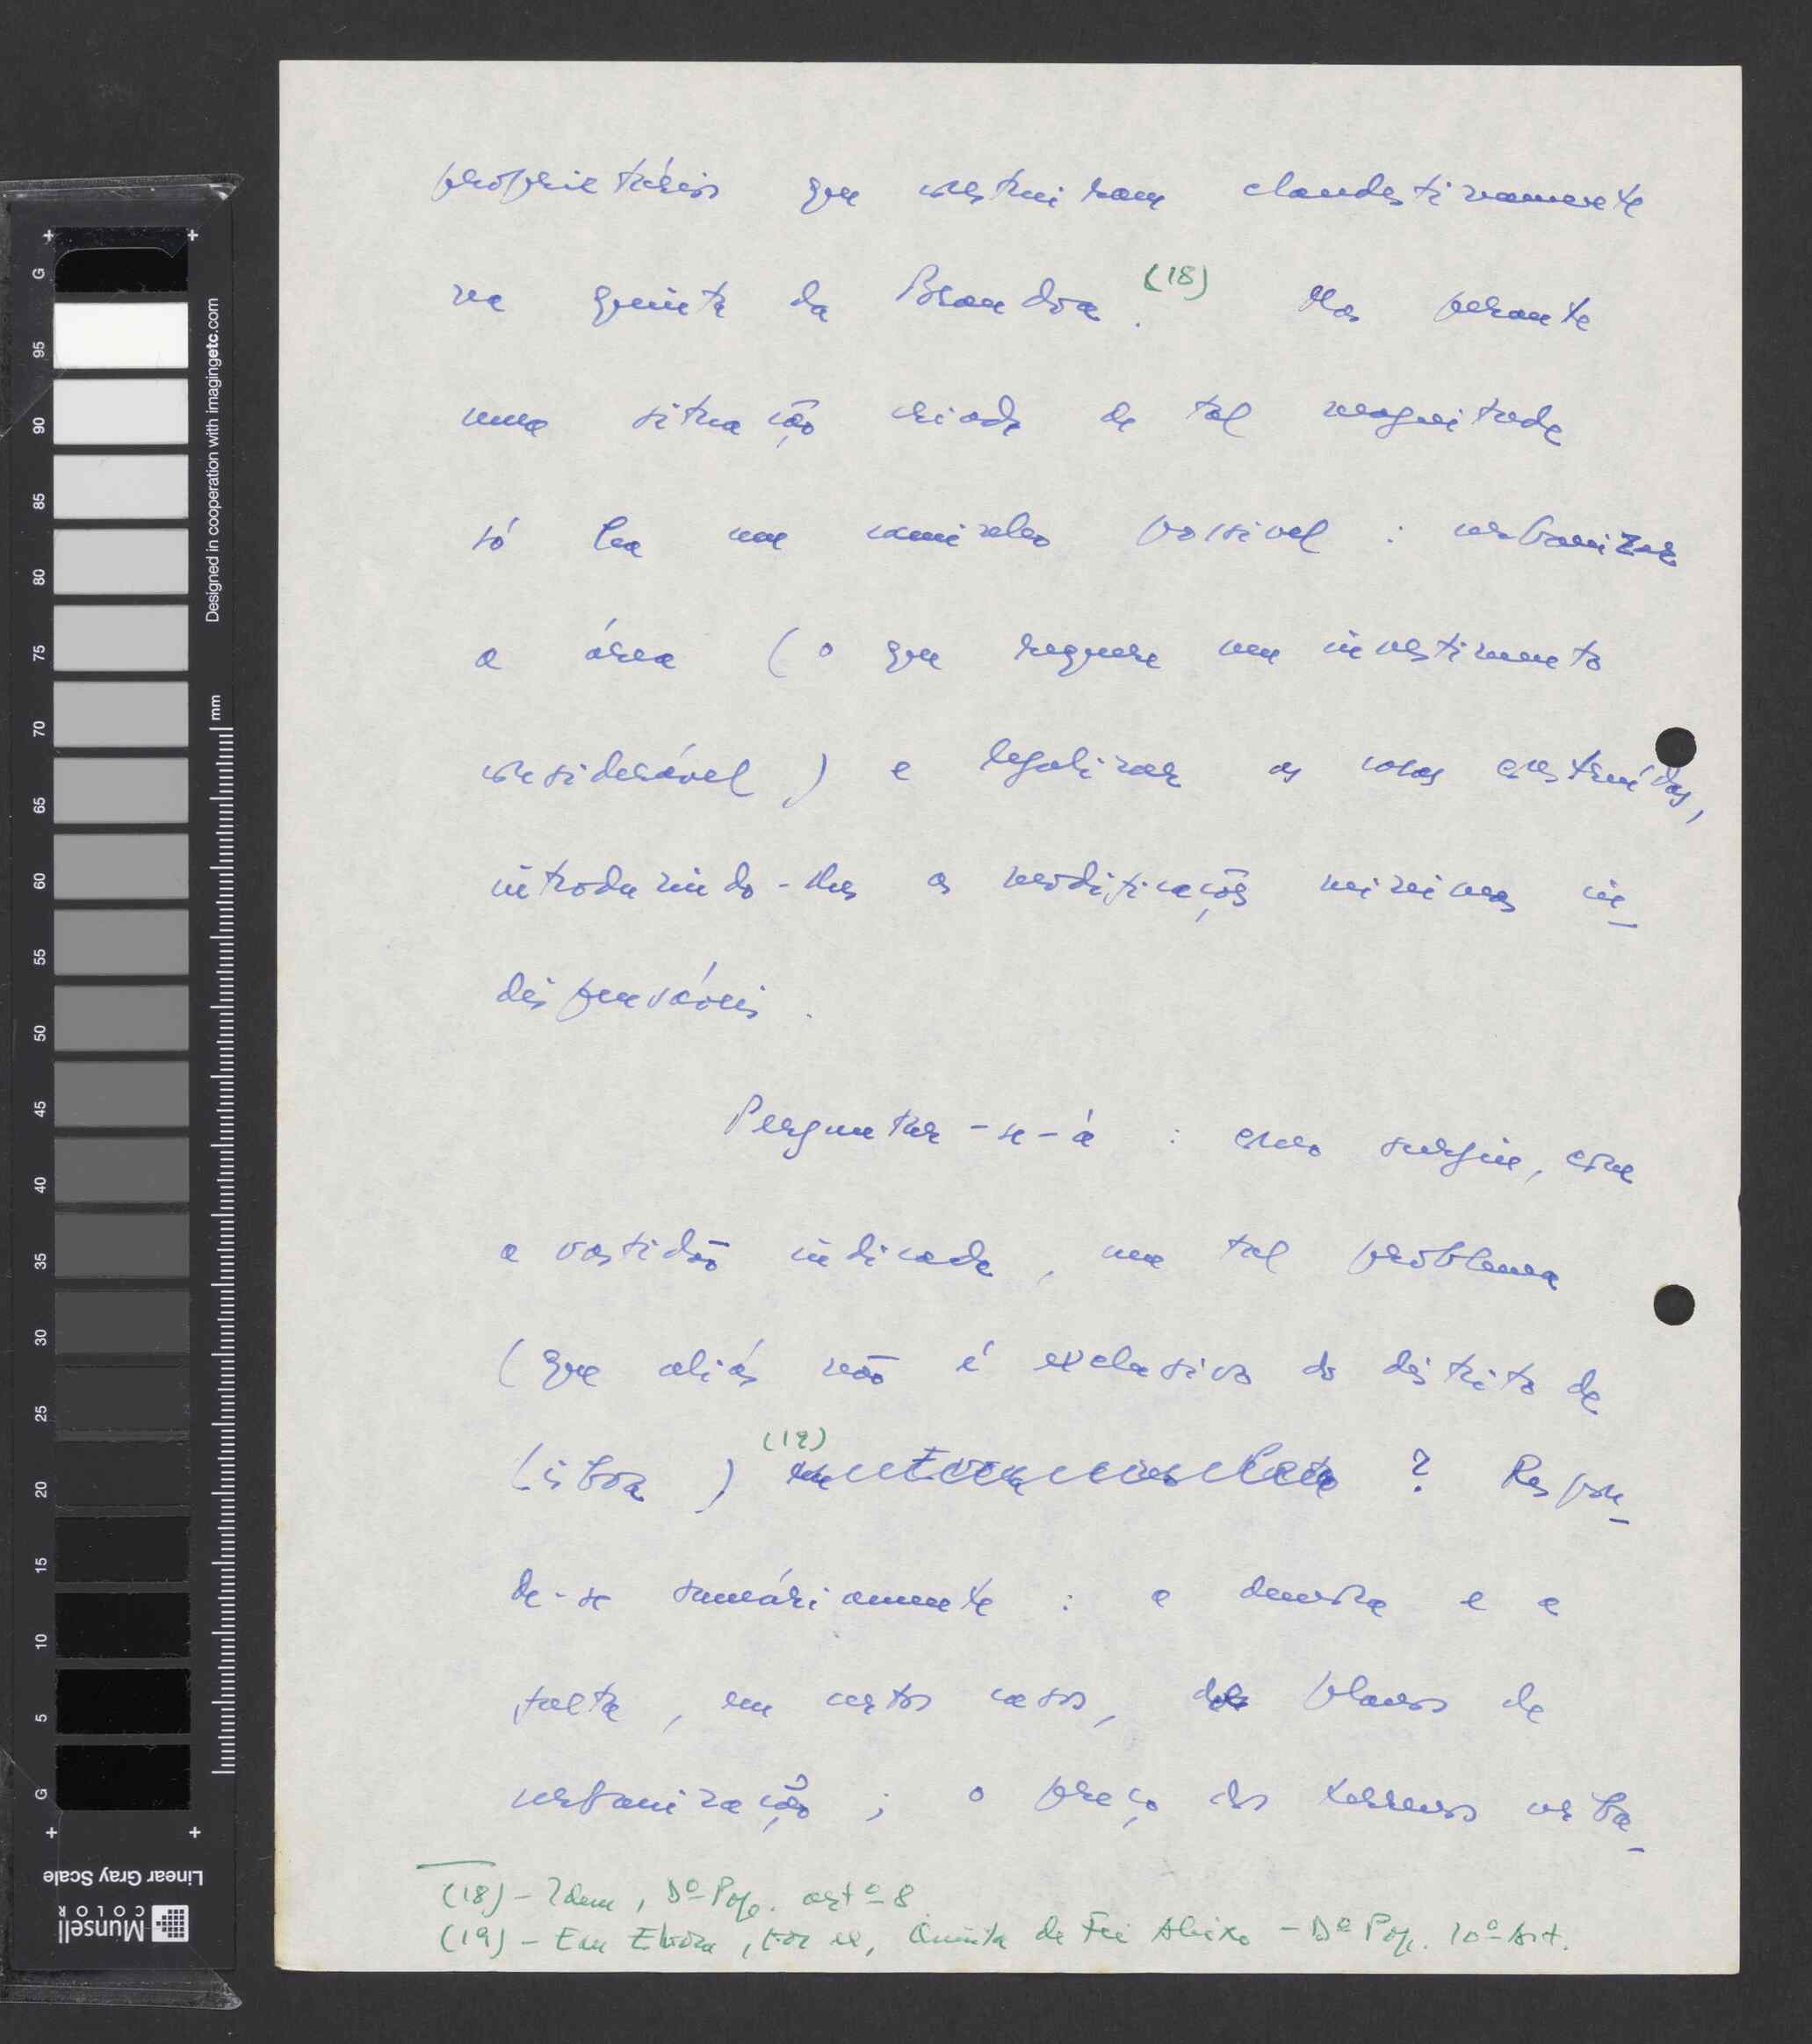 proprietários que construiram clandestinamente
na quinta da Brandoa. (18) Mas perante
uma situação criada de tal magnitude
só há um caminho possivel : urbanizar
a área ( o que requere um investimento
considerável ) e legalizar as casas construídas,
introduzindo-lhes as modificações minimas in-
dispensáveis .
Perguntar-se-á : como surgiu, com
a vastidão indicada, um tal problema
(que aliás não é exclusivo do distrito de
Lisboa ) (19) ? Respon-
de-se sumáriamente : a demora e a
falta, em certos casos, de planos de
urbanização ; o preço dos terrenos urba-
(18) - Idem, Dº Pop. artº 8
(19) - Em Évora, por ex, Quinta de Frei Aleixo - Dº Pop. 10º Art.
G 95 90 85 80 75 70 65 60 55 50 45 40 35 30 25 20 15 10 5 G
mm
Designed in cooperation with imagingetc.com
Linear Gray Scale
Munsell
COLOR